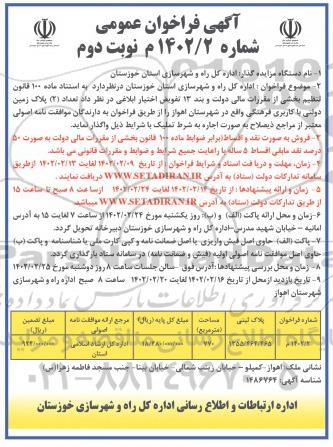 آگهی فراخوان عمومی
شماره ۱۴۰۲/۲ م نوبت دوم
۱- نام دستگاه مزایده گذار: اداره کل راه و شهرسازی استان خوزستان
۲- موضوع فراخوان : اداره کل راه و شهرسازی استان خوزستان درنظردارد به استناد ماده ۱۰۰ قانون
تنظیم بخشی از مقررات مالی دولت و بند ۱۳ تفویض اختیار ابلاغی در نظر دارد تعداد (۲) پلاک زمین
دولتی با کاربری فرهنگی واقع در شهرستان اهواز را از طریق فراخوان به دارندگان موافقت نامه اصولی
معتبر از مراجع ذیصلاح به صورت اجاره به شرط تملیک با شرایط ذیل واگذار نماید.
۳- فروش به صورت نقد و اقساط(برابر ضوابط ماده ۱۰۰ قانون بخشی از مقررات مالی دولت به صورت ۵۰
درصد نقد مابقی اقساط ۵ ساله با رعایت جمیع شرایط و ضوابط و مقررات قانونی می باشد.
۴- زمان، مهلت و دریافت اسناد و شرایط فراخوان : از تاریخ ۱۴۰۲/۰۲/۰۹ لغایت ۱۴۰۲/۰۲/۱۳ ازطریق
سامانه تدارکات دولت (ستاد) به آدرس WWW.SETADIRAN.IR دریافت نمایند.
۵- زمان و ارائه پیشنهادها : از تاریخ ۱۴۰۲/۰۲/۱۴ لغایت ۱۴۰۲/۰۲/۲۴ ازسا عت ۸ صبح تا ساعت ۱۵
از طریق تدارکات دولت (ستاد) به آدرس WWW.SETADIRAN.IR میباشد.
۶- زمان و محل ارائه پاکت (الف) و (ب): روز یکشنبه مورخ ۱۴۰۲/۰۲/۲۴ از ساعت ۷ لغایت ۱۵ به آدرس
امانیه - خیابان شهید مدرس-اداره کل راه و شهرسازی خوزستان دبیرخانه تحویل گردد.
۷- پاکت (الف) حاوی اصل فیش واریزی یا اصل ضمانت نامه و کپی کارت ملی یا شناسنامه و پاکت (ب)
حاوی اصل موافقت نامه اصولی اولیه (فیش و ضمانت نامه) در سامانه ستاد بارگذاری گردد.
۸- زمان و محل بررسی پیشنهادها: آدرس فوق -سالن جلسات ساعت ۸ روز دوشنبه مورخ ۱۴۰۲/۰۲/۲۵
۹- تاریخ بازدید از محل از تاریخ ۱۴۰۲/۰۲/۱۶ لغایت ۱۴۰۲/۰۲/۲۰ ازساعت ۸ صبح اداره راه و شهرسازی
شهرستان اهواز
شماره فراخوان پلاک ثبتی مساحت (مترمربع) مبلغ کل پایه (ریال) مرجع ارائه موافقت نامه اصولی مبلغ تضمین (ریال)
اداره کل ارشاد اسلامی استان
نشانی ملک: اهواز-کمپلو - خیابان زینب شمالی- خیابان بیتا - جنب مسجد فاطمه زهرا(س)
شناسه آگهی: ۱۴۸۶۷۶۴
اداره ارتباطات و اطلاع رسانی اداره کل راه و شهرسازی خوزستان